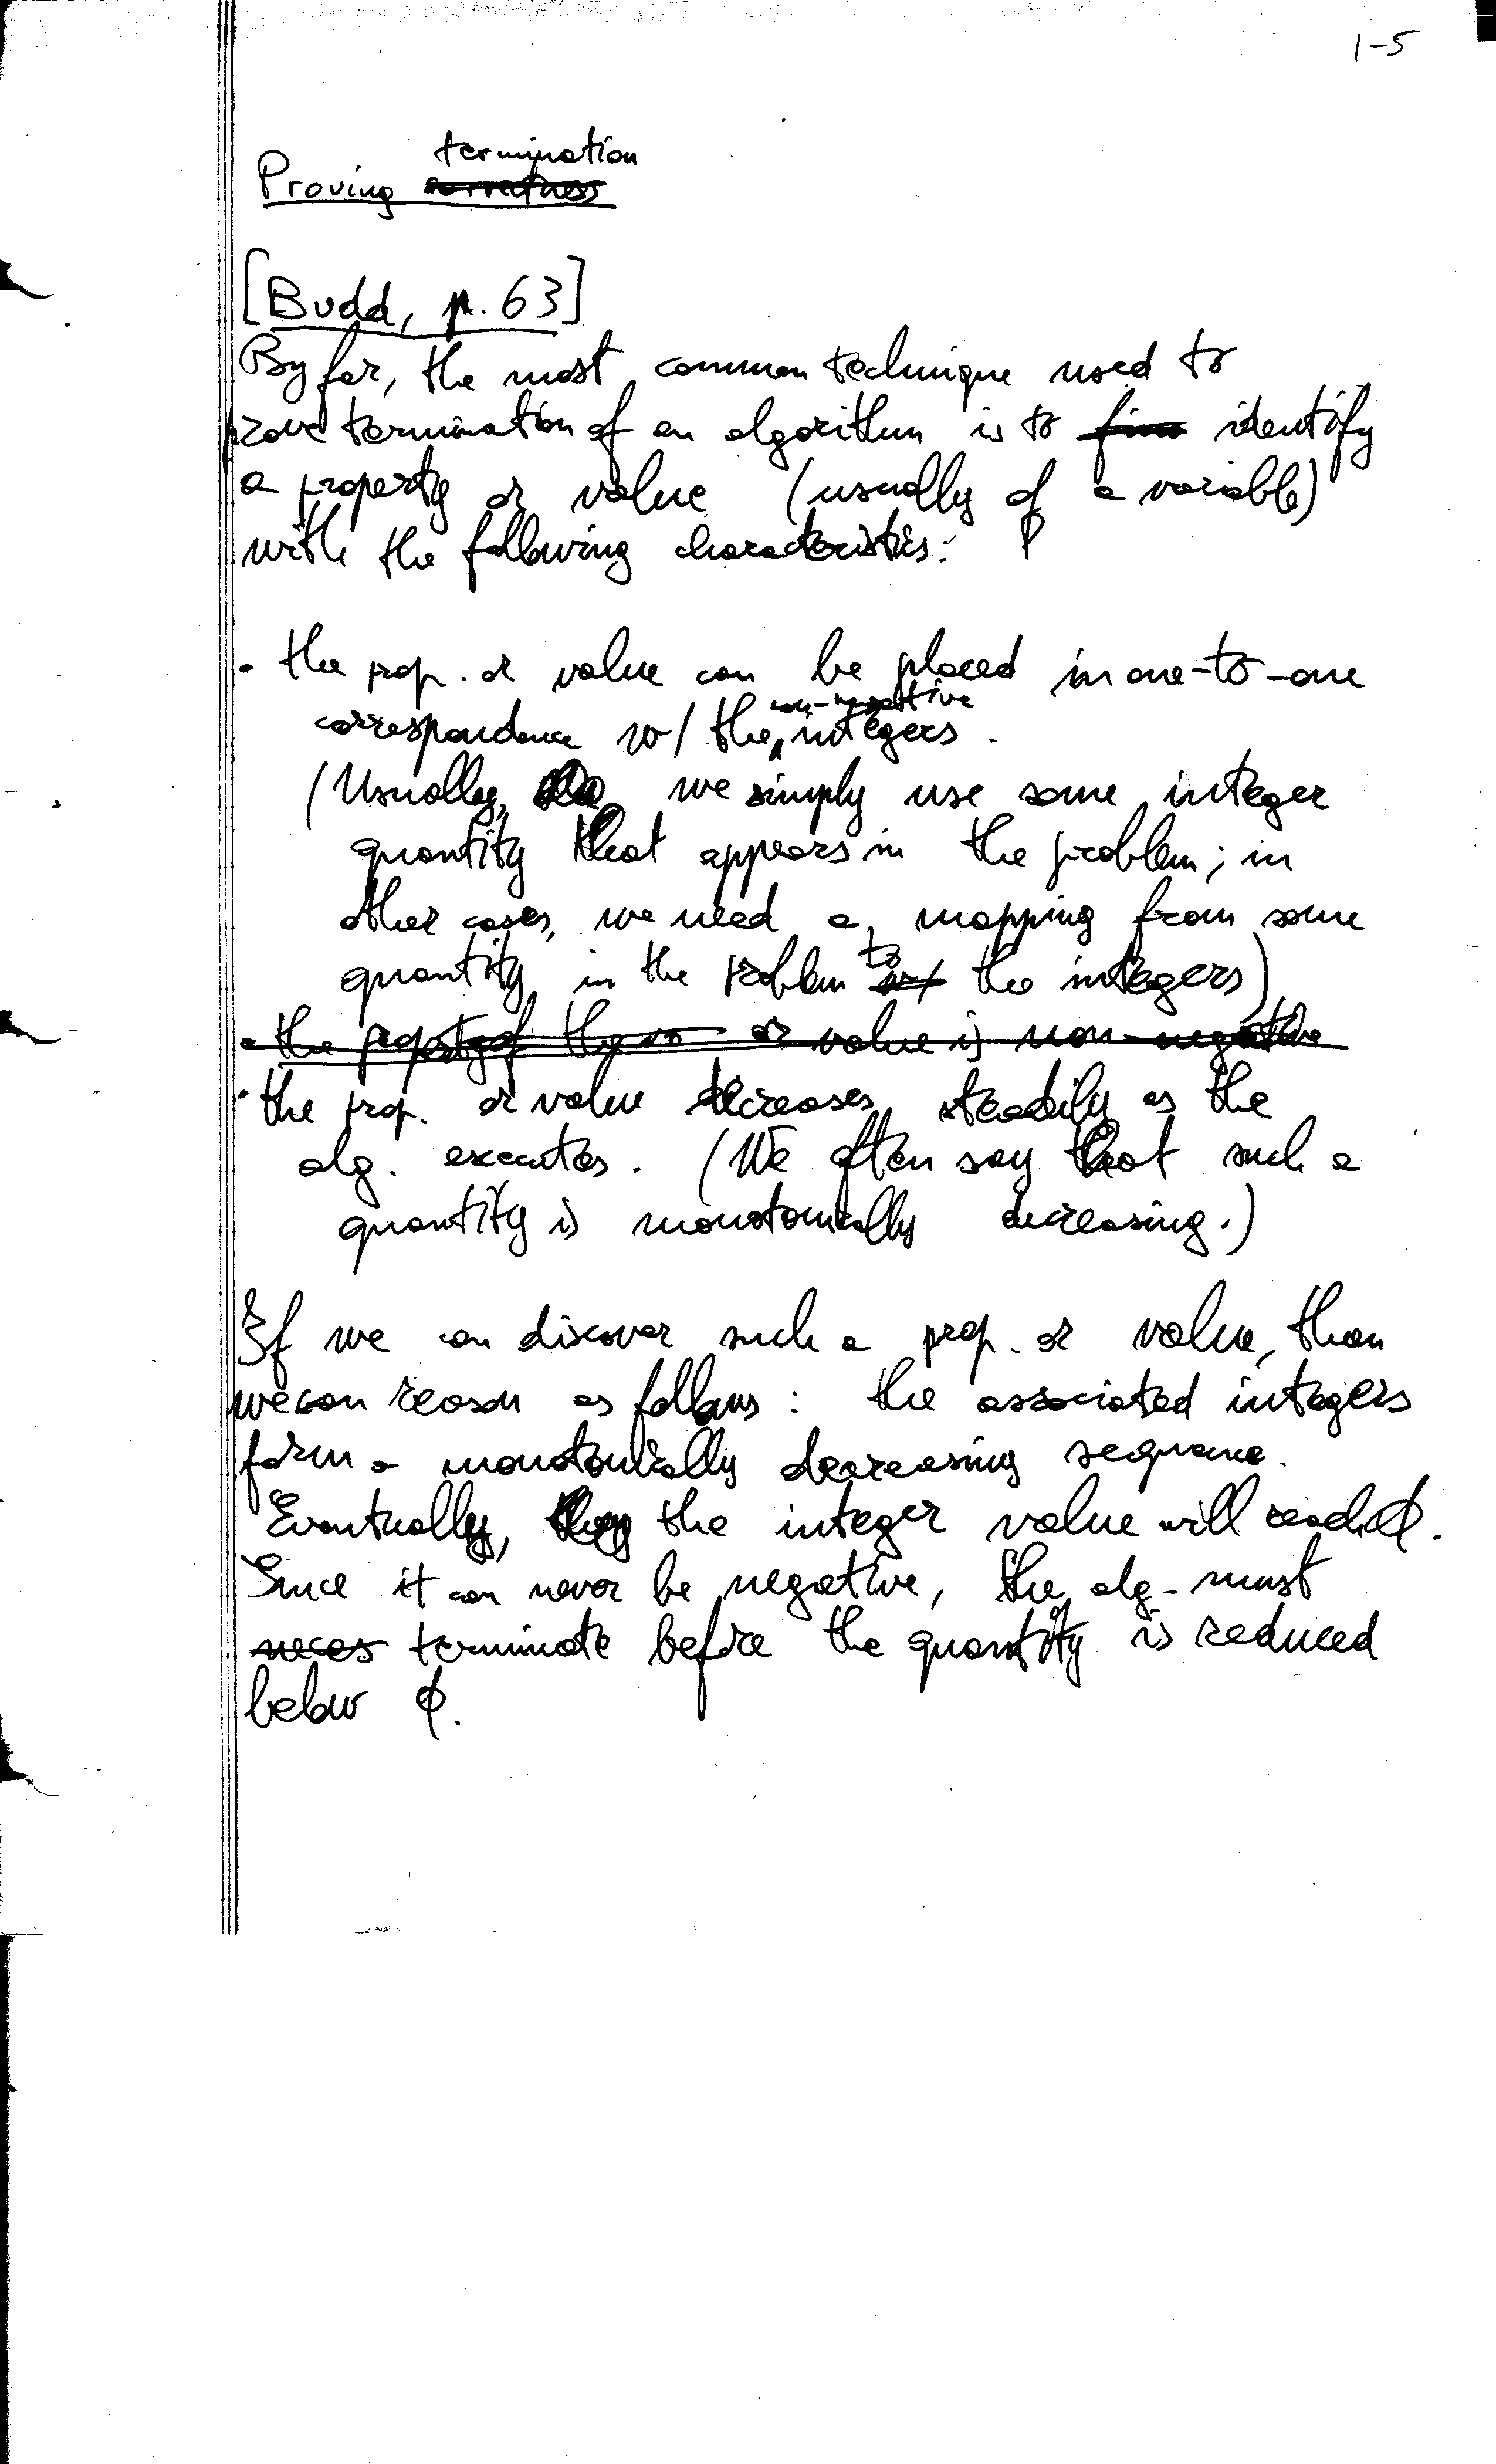 1-5
termination
Proving correctness
[Budd, p. 63]
By far, the most common technique used to
prove termination of an algorithm is to identify
a property or value (usually of a variable)
with the following characteristics:
• the prop. or value can be placed in one-to-one
non-negative
correspondence w/ the integers.
(Usually, we simply use some integer
quantity that appears in the problem; in
other cases, we need a mapping from some
to
quantity in the problem w/ the integers)
• the property or value is non-negative
• the prop. or value decreases steadily as the
alg. executes. (We often say that such a
quantity is monotonically decreasing.)
If we can discover such a prop. or value, then
we can reason as follows: the associated integers
form a monotonically decreasing sequence.
Eventually, they the integer value will reach 0.
Since it can never be negative, the alg. must
neces terminate before the quantity is reduced
below 0.